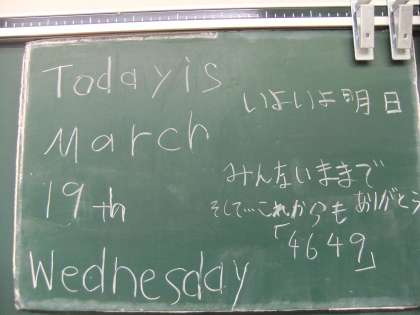 Today is
March
19th
Wednesday
いよいよ明日
みんないままで
そして…これからもありがとう
「4649」